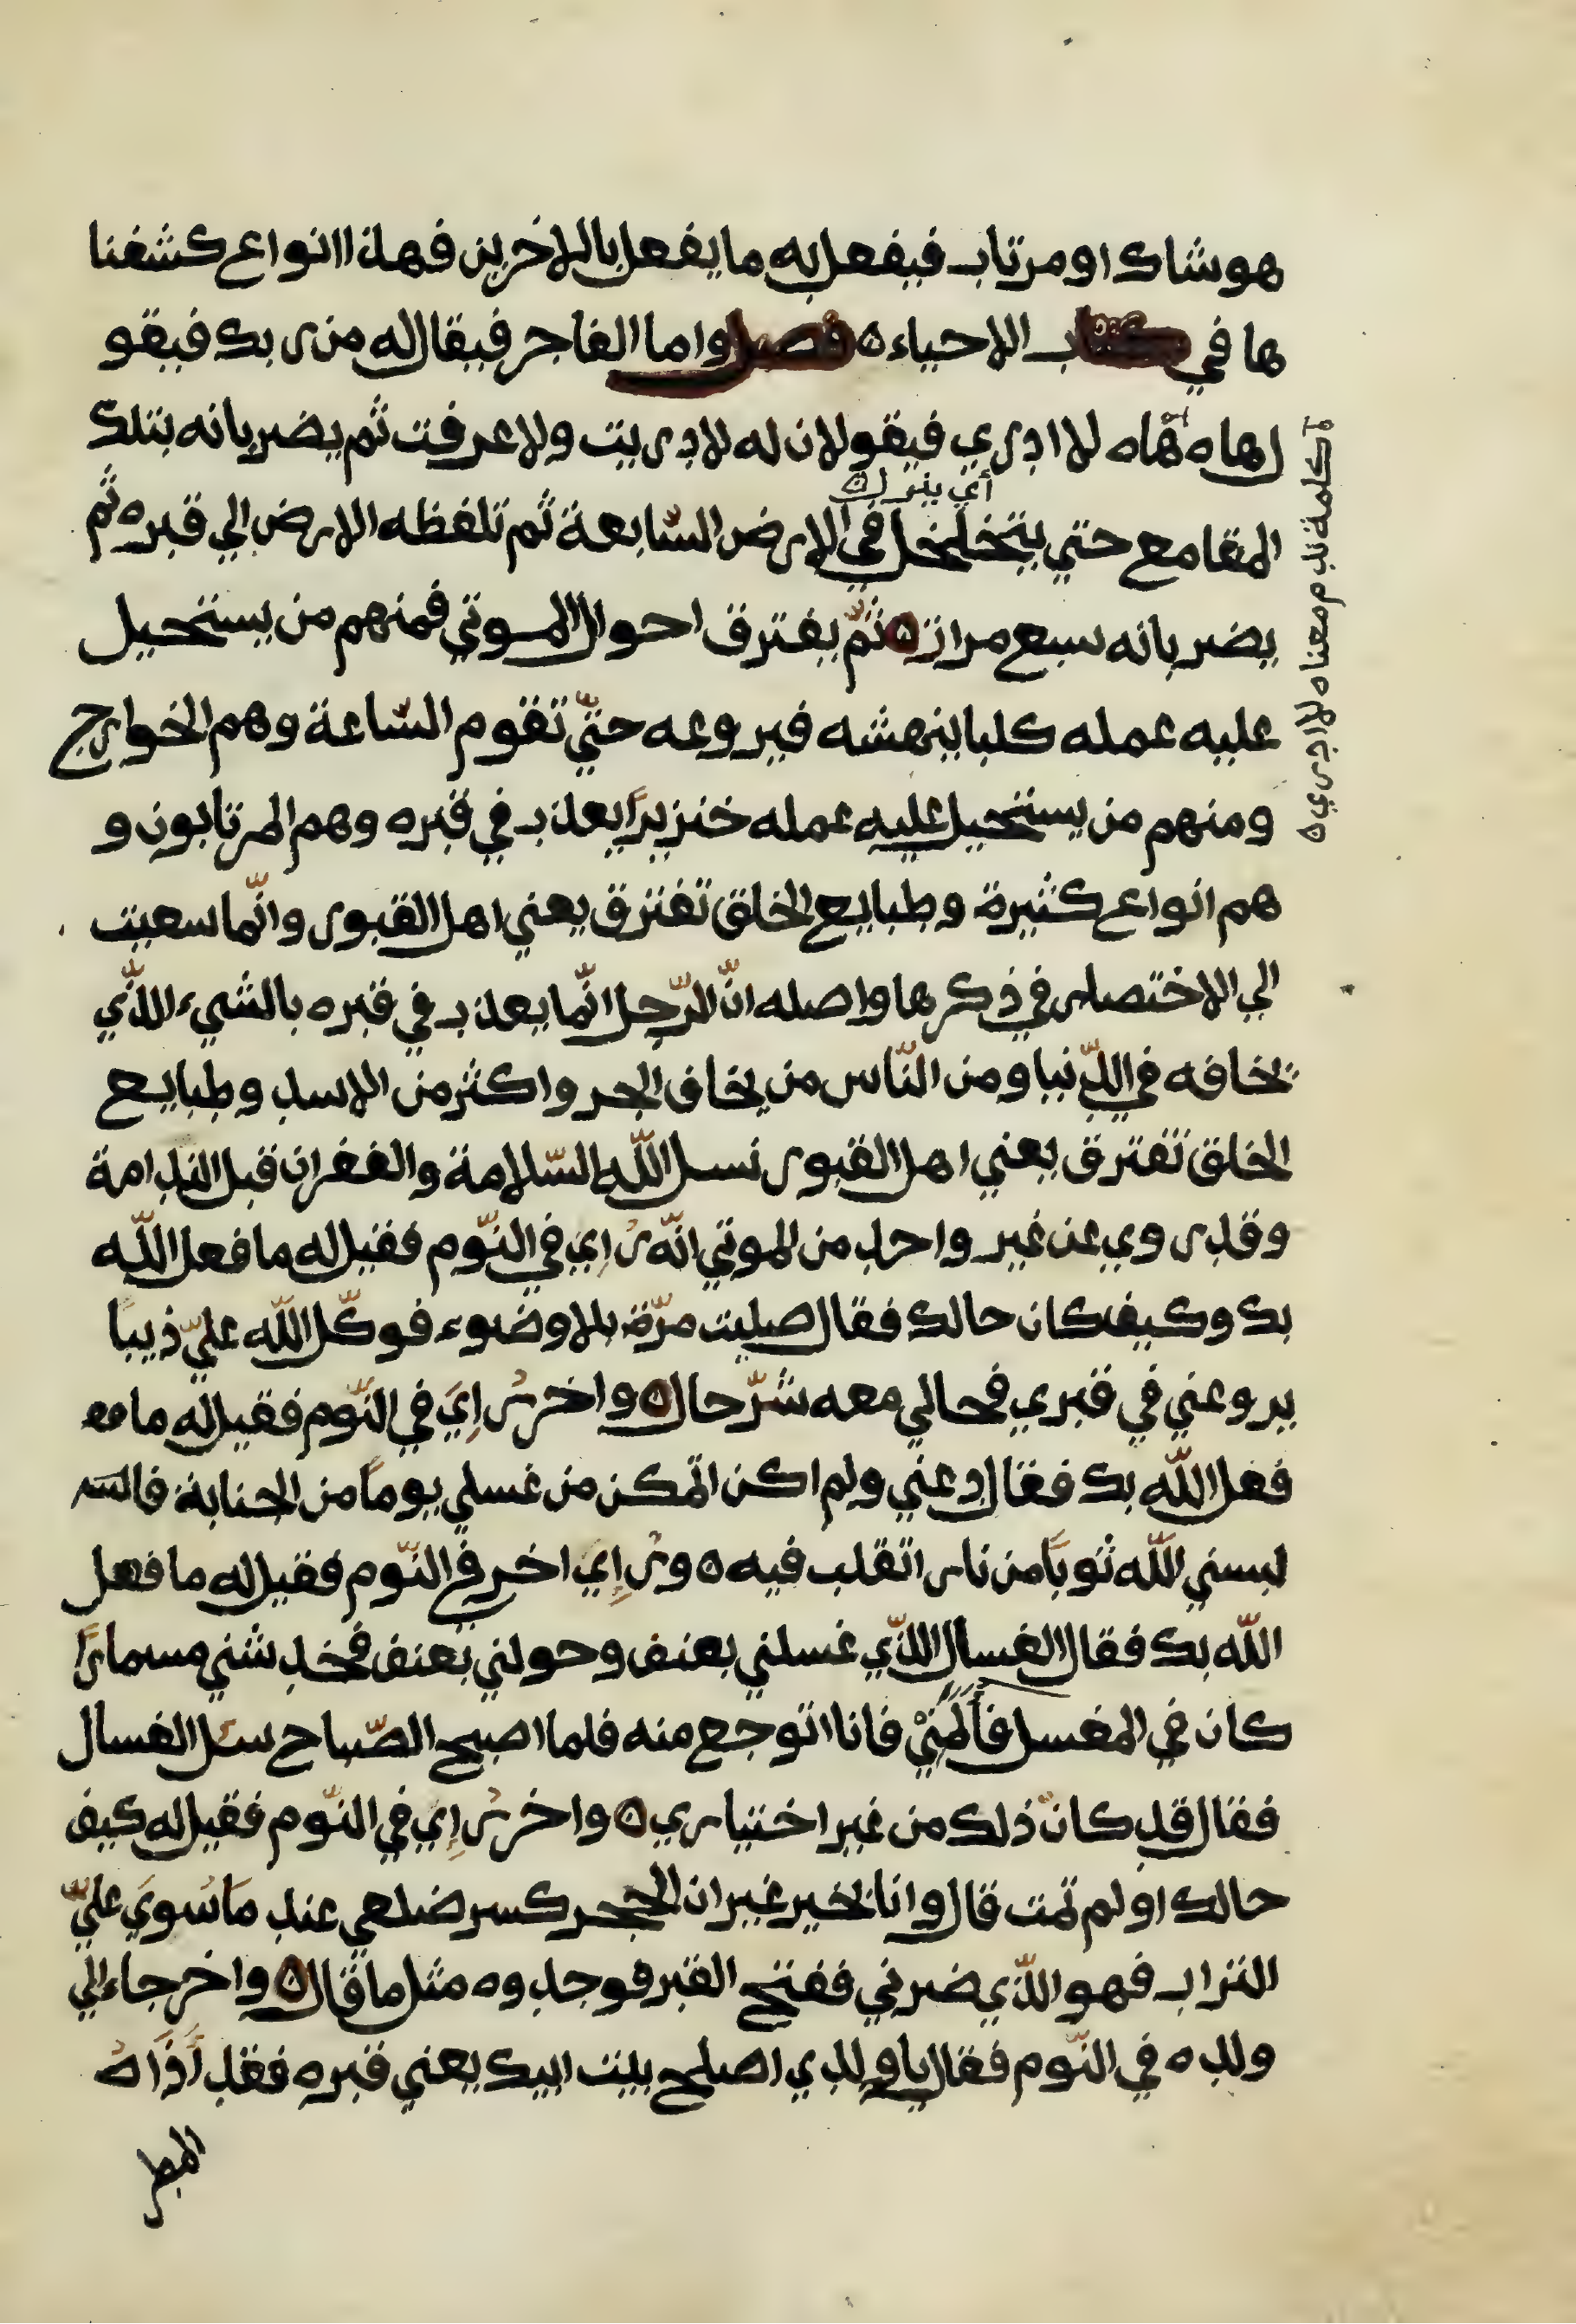 هو شاك او مرتاب فيفعل به ما يفعل بالاخرين فهذا انواع كشفنا
ها في كتاب الاحياء ه فصل واما الفاجر فيقال له من ربك فيقو
ل هاه هاه لا ادري فيقولان له لا دريت ولا عرفت ثم يضربانه بتلك
أي ينزل
المقامع حتي يتخلخل في الارض السّابعة ثم تلفظه الارض الي قبره ثم
يضربانه سبع مرات ه ثمّ يفترق احوال الموتي فمنهم من يستحيل
عليه عمله كلبا ينهشه فيروعه حتّي تقوم السّاعة وهم الخوارج
ومنهم من يستحيل عليه عمله خنزيرًا يعذب في قبره وهم المرتابون و
هم انواع كثيرة وطبايع الخلق تفترق يعني اهل القبور وانّما سعيت
الي الاختصار في ذكرها واصله انّ الرّجل انّما يعذب في قبره بالشيء الّذي
يخافه في الدّنيا ومن النّاس من يخاف الجرو اكثر من الاسد وطبايع
الخلق تفترق يعني اهل القبور نسل اللّه السّلامة والغفران قبل الندامة
وقد روي عن غير واحد من الموتي انّه راي في النّوم فقيل له ما فعل اللّه
بك وكيف كان حالك فقال صليت مرّة بلا وضوء فوكّل اللّه عليّ ذيبًا
يروعني في قبري فحالي معه شرّ حال ه واخر راي في النّوم فقيل له ما فع
فعل اللّه بك فقال دعني ولم اكن اتمكن من غسلي يومًا من الجنابة فا
لبسني اللّه ثوبًا من نار اتقلب فيه ه وراي اخر في النّوم فقيل له ما فعل
اللّه بك فقال الغسال الّذي غسلني بعنف وحولني بعنف فخدشني مسمارًا
كان في المغسل فألمني فانا اتوجع منه فلما اصبح الصّباح سئل الغسال
فقال قد كان ذلك من غير اختياري ه واخر راي في النّوم فقيل له كيف
حالك اولم تمت قال وانا بخير غير ان الحجر كسر ضلعي عند ما سُوِيَ عليّ
التراب فهو الّذي ضرني ففتح القبر فوجدوه مثل ما قال ه واخر جاء الي
ولده في النّوم فقال يا ولدي اصلح بيت ابيك يعني قبره فقد أذاه
المطر
كلمة ندم معناه لا ادري ه